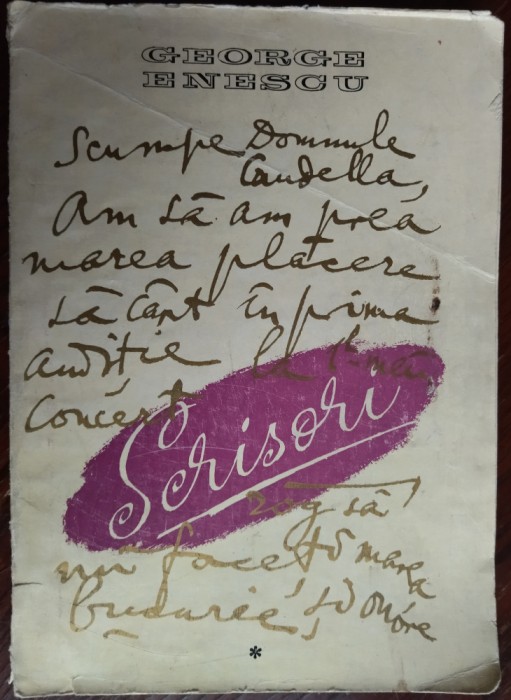 GEORGE
ENESCU
Scumpe Domnule
Caudella,
Am să am prea
marea plăcere
să cânt în prima
audiție la
Concert
Scrisori
rog să
mare
bucurie, să
*